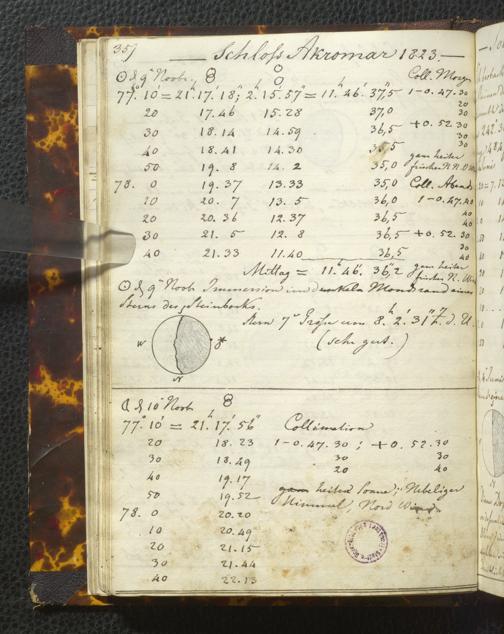 359
Schloss Akromar 1823.
☉ d 9ᵗ Novb. 8 8 Coll. Morg.
77°. 10' = 21. 17. 18; 2. 15. 57" = 11. 46. 37,5 1 - 0. 47. 30
20 17. 46 15. 28 37,0 20
30 18. 14 14. 59. 36,5 + 0. 52. 30
40 18. 41 14. 30 35,5 30
50 19. 8 14. 2 35,0
78. 0 19. 37 13. 33 35,0 Coll. Abends
10 20. 7 13. 5 36,0 1 - 0. 47. 40
20 20. 36 12. 37 36,5 40
30 21. 5 12. 8 36,5 + 0. 52. 30
40 21. 33 11. 40 36,5 40
Mittag = 11. 46. 36,2 ganz heiter
☉ d 9ᵗ Novb Immersion im dunkeln Mondrand eines
Sterns des Steinbocks.
Stern 7ᵗ Größe um 8. 2. 31" d. U.
(sehr gut.)
W *
N
d 10ᵗ Novb 8
77°. 10' = 21. 17. 56" Collimation
20 18. 23 1 - 0. 47. 30; + 0. 52. 30
30 18. 49 30 30
40 19. 17 20 40
50 19. 52 heitere Sonne; Nebeliger
78. 0 20. 20 Himmel, Nord Wind
10 20. 49
20 21. 15
30 21. 44
40 22. 13